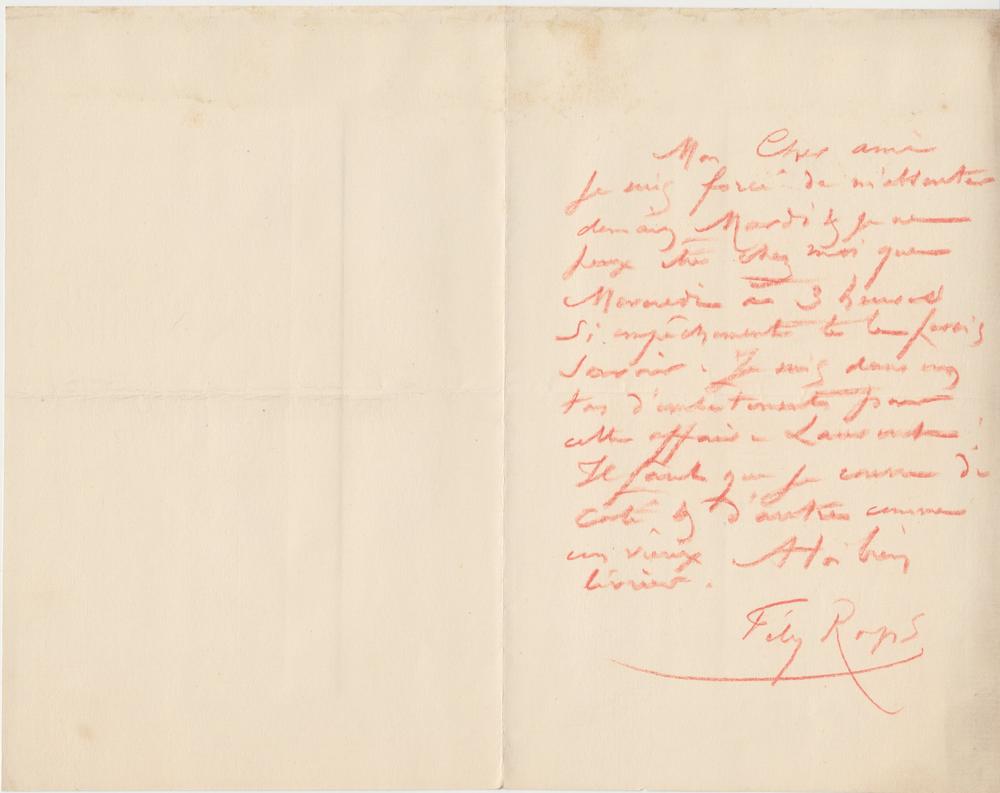 Mon Cher ami
Je suis forcé de m'absenter
demain Mardi & je ne
peux être chez moi que
Mercredi à 3 heures
Si empêchement te le ferais
Savoir. Je suis dans un
tas d'embêtements pour
cette affaire
Il faut que je coure de
côté & d'autre comme
un vieux A toi bien
Fély Rops